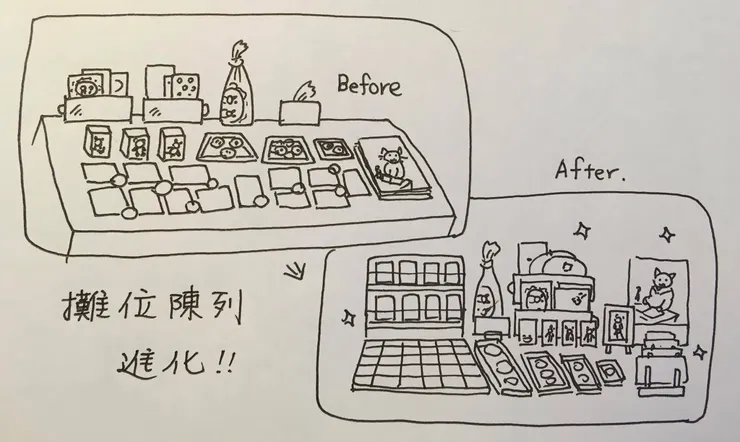 Before
After.
攤位陳列
進化!!